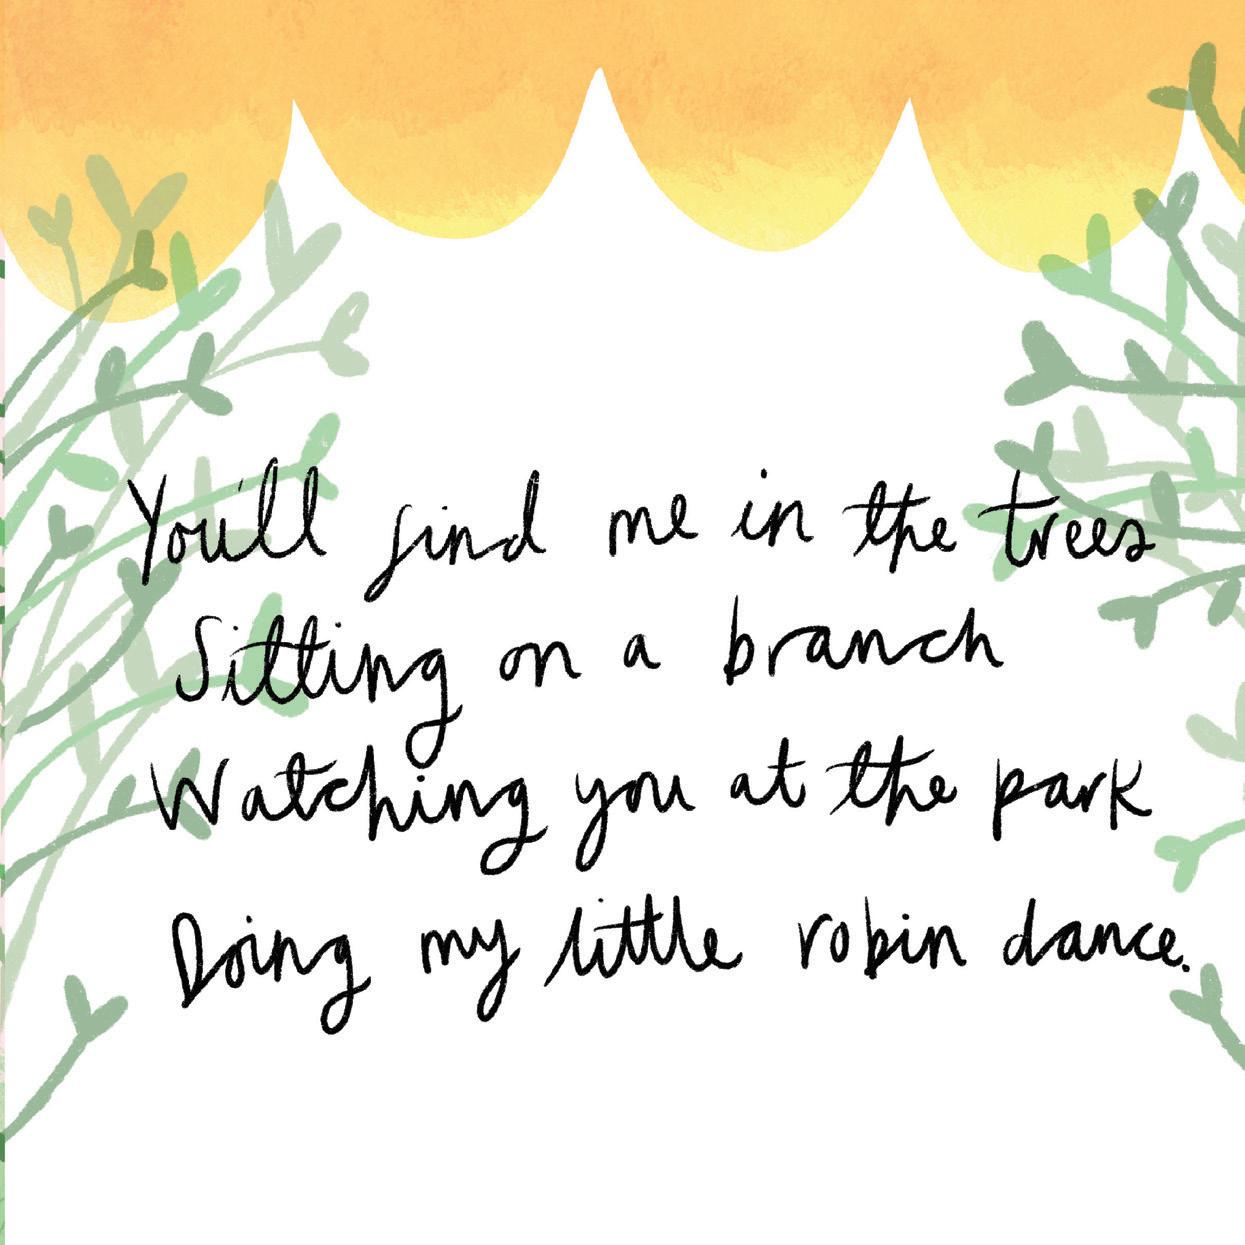 You'll find me in the trees
Sitting on a branch
Watching you at the park
Doing my little robin dance.